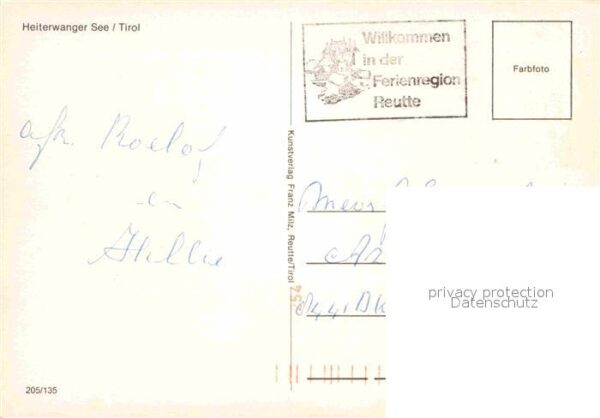 Heiterwanger See / Tirol
Willkommen
in der
Ferienregion
Reutte
Farbfoto
afz. Roelof
en
Hillie
Kunstverlag Franz Milz, Reutte/Tirol
privacy protection
Datenschutz
205/135